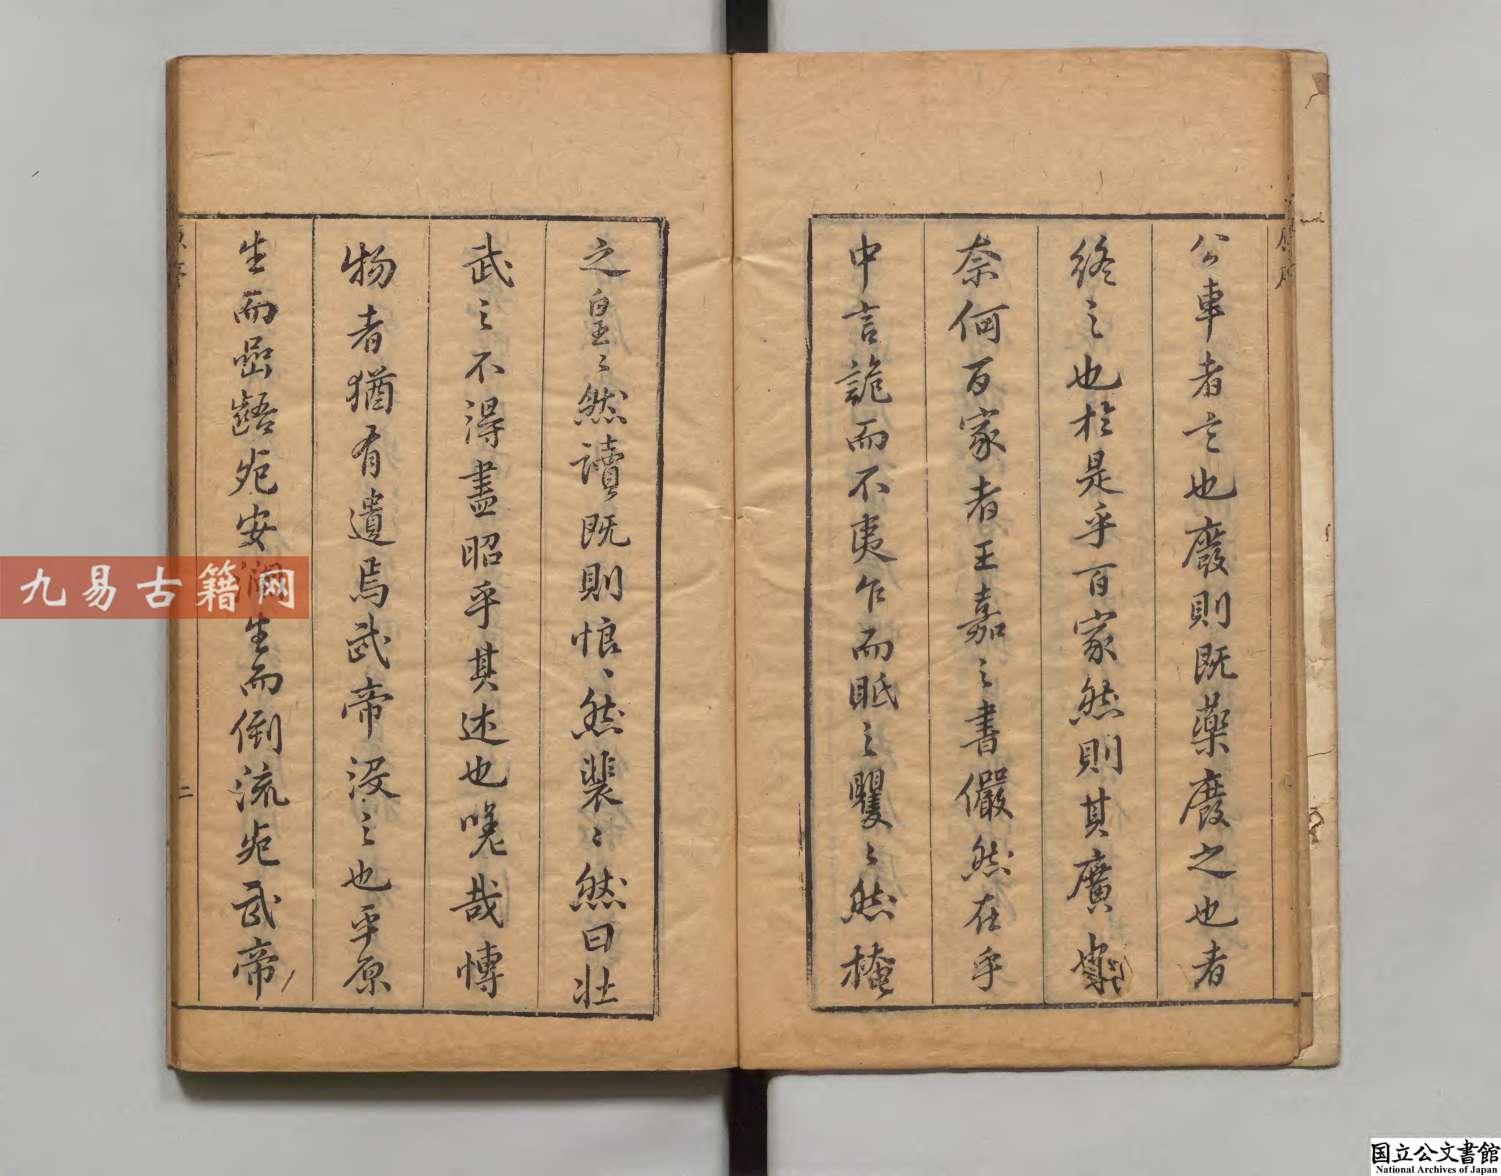 公車者言也廢則既藥廢之也者
終之也於是乎百家然則其廣
奈何百家者王嘉之書儼然在乎
中言詭而不夷乍而眂之矍〻然掩
之皇〻然讀既則悢〻然裴〻然曰壮
武之不得盡昭乎其述也嘅哉愽
物者猶有遺焉武帝没之也平原
生而齬宛安生而倒流宛武帝
二
九易古籍网
国立公文書館
National Archives of Japan